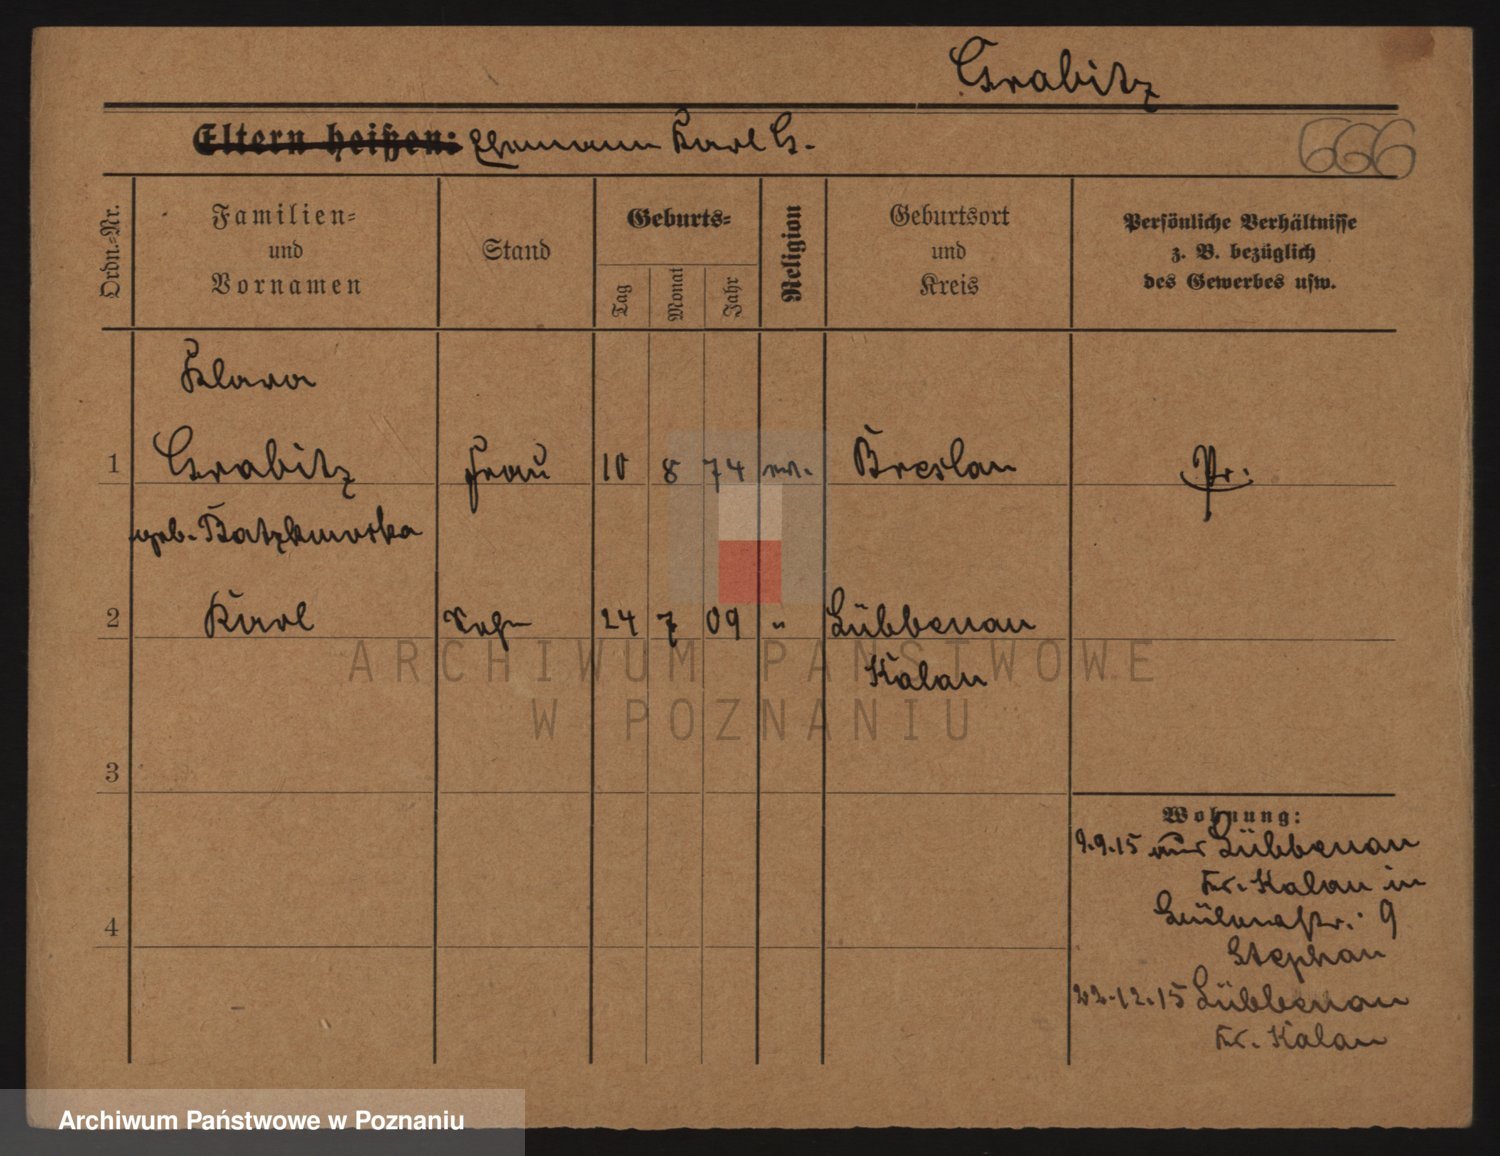 Grabitz
Eltern heißen: Ehemann Karl G.
666
Ordn.-Nr.
Familien-
und
Vornamen
Stand
Geburts-
Tag
Monat
Jahr
Religion
Geburtsort
und
Kreis
Persönliche Verhältnisse
z. B. bezüglich
des Gewerbes usw.
Klara
1 Grabitz Frau 10 8 74 ev. Breslau Pr.
geb.
2 Karl Sohn 24 7 09 " Lübbenau
Kalau
3
4
Wohnung:
9.9.15 aus Lübbenau
Kr. Kalau in
9
Stephan
22.12.15 Lübbenau
Kr. Kalau
ARCHIWUM PAŃSTWOWE
W POZNANIU
Archiwum Państwowe w Poznaniu